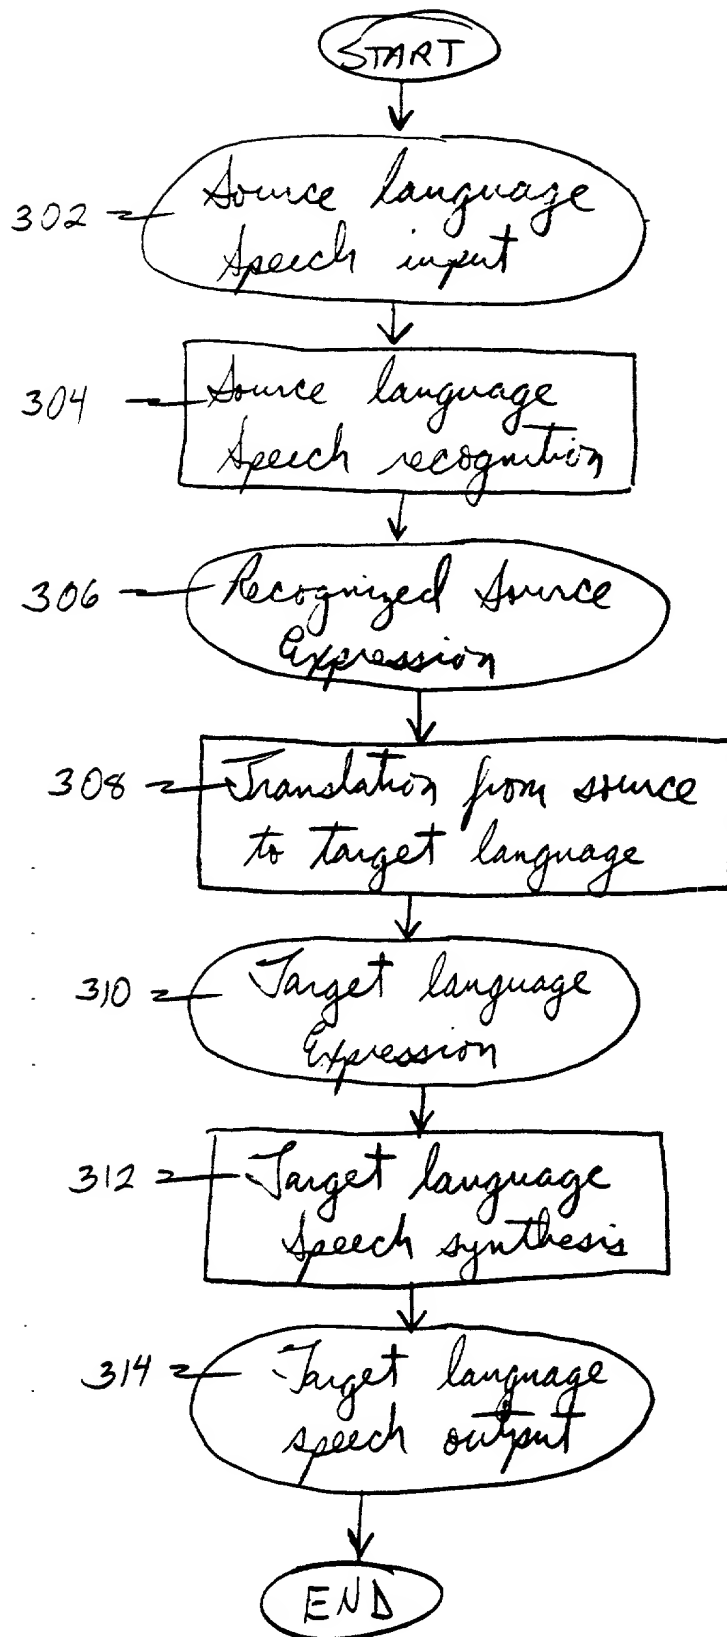 START
302 Source language
speech input
304 Source language
speech recognition
306 Recognized Source
Expression
308 Translation from source
to target language
310 Target language
Expression
312 Target language
speech synthesis
314 Target language
speech output
END